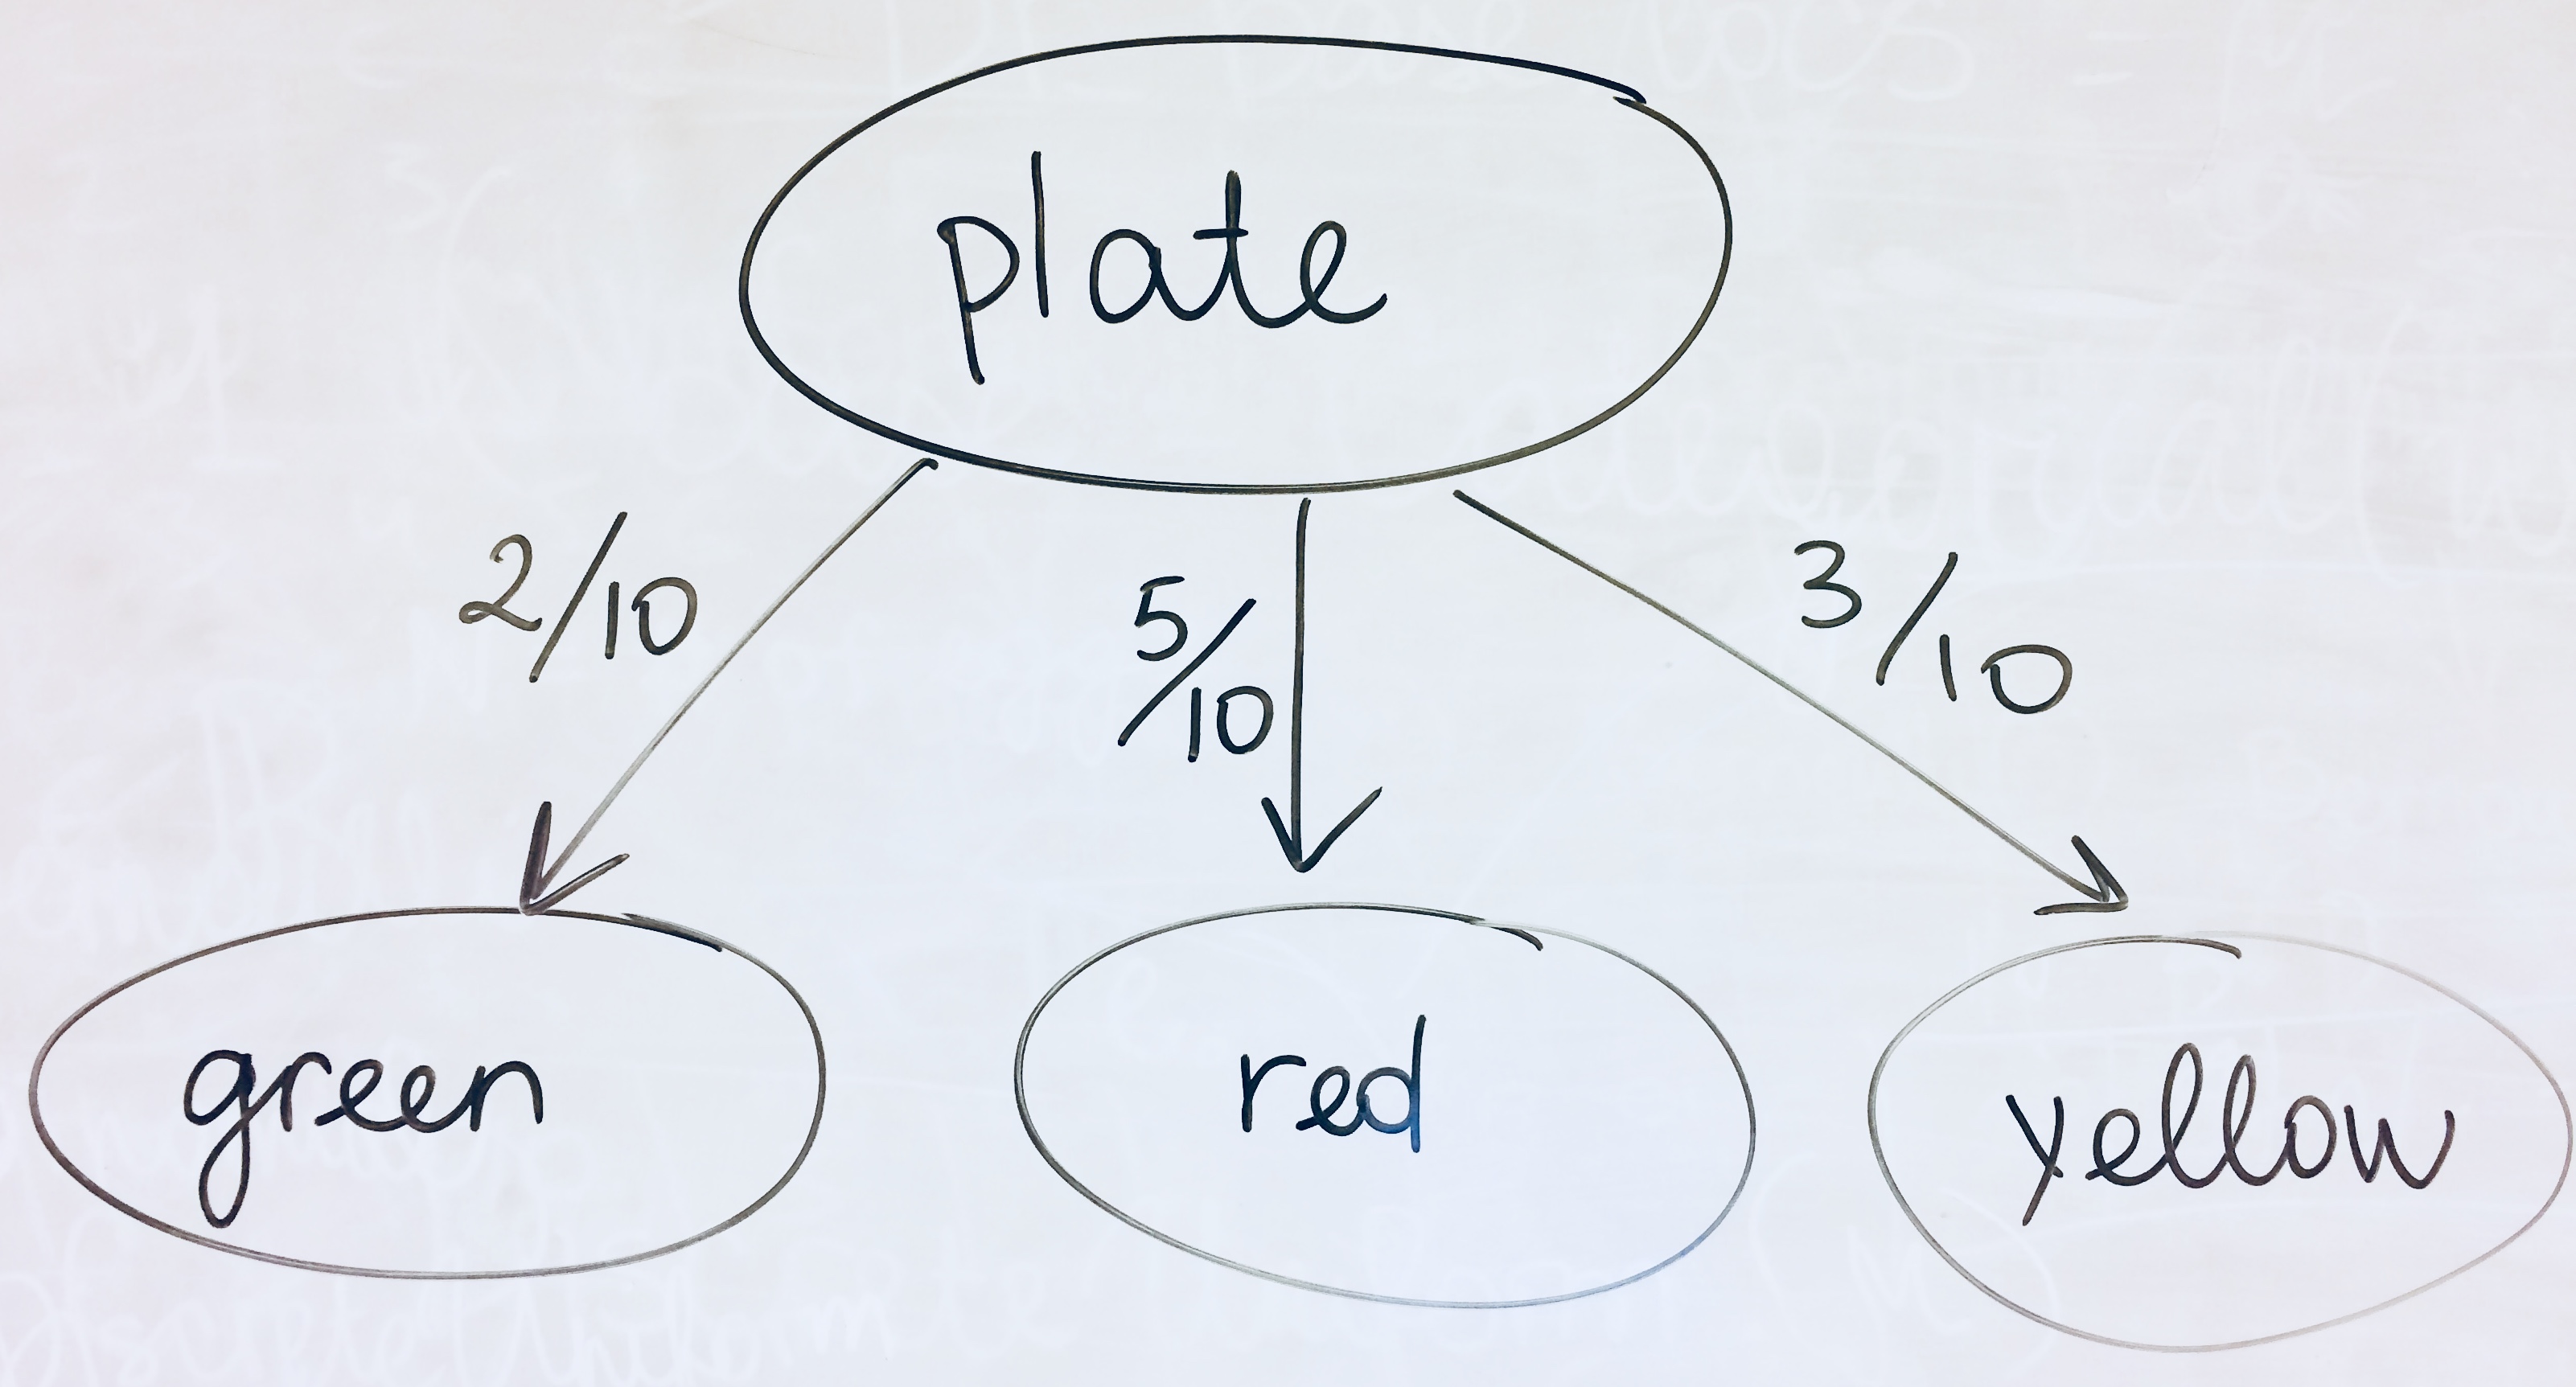 plate
2/10
5/10
3/10
green
red
yellow